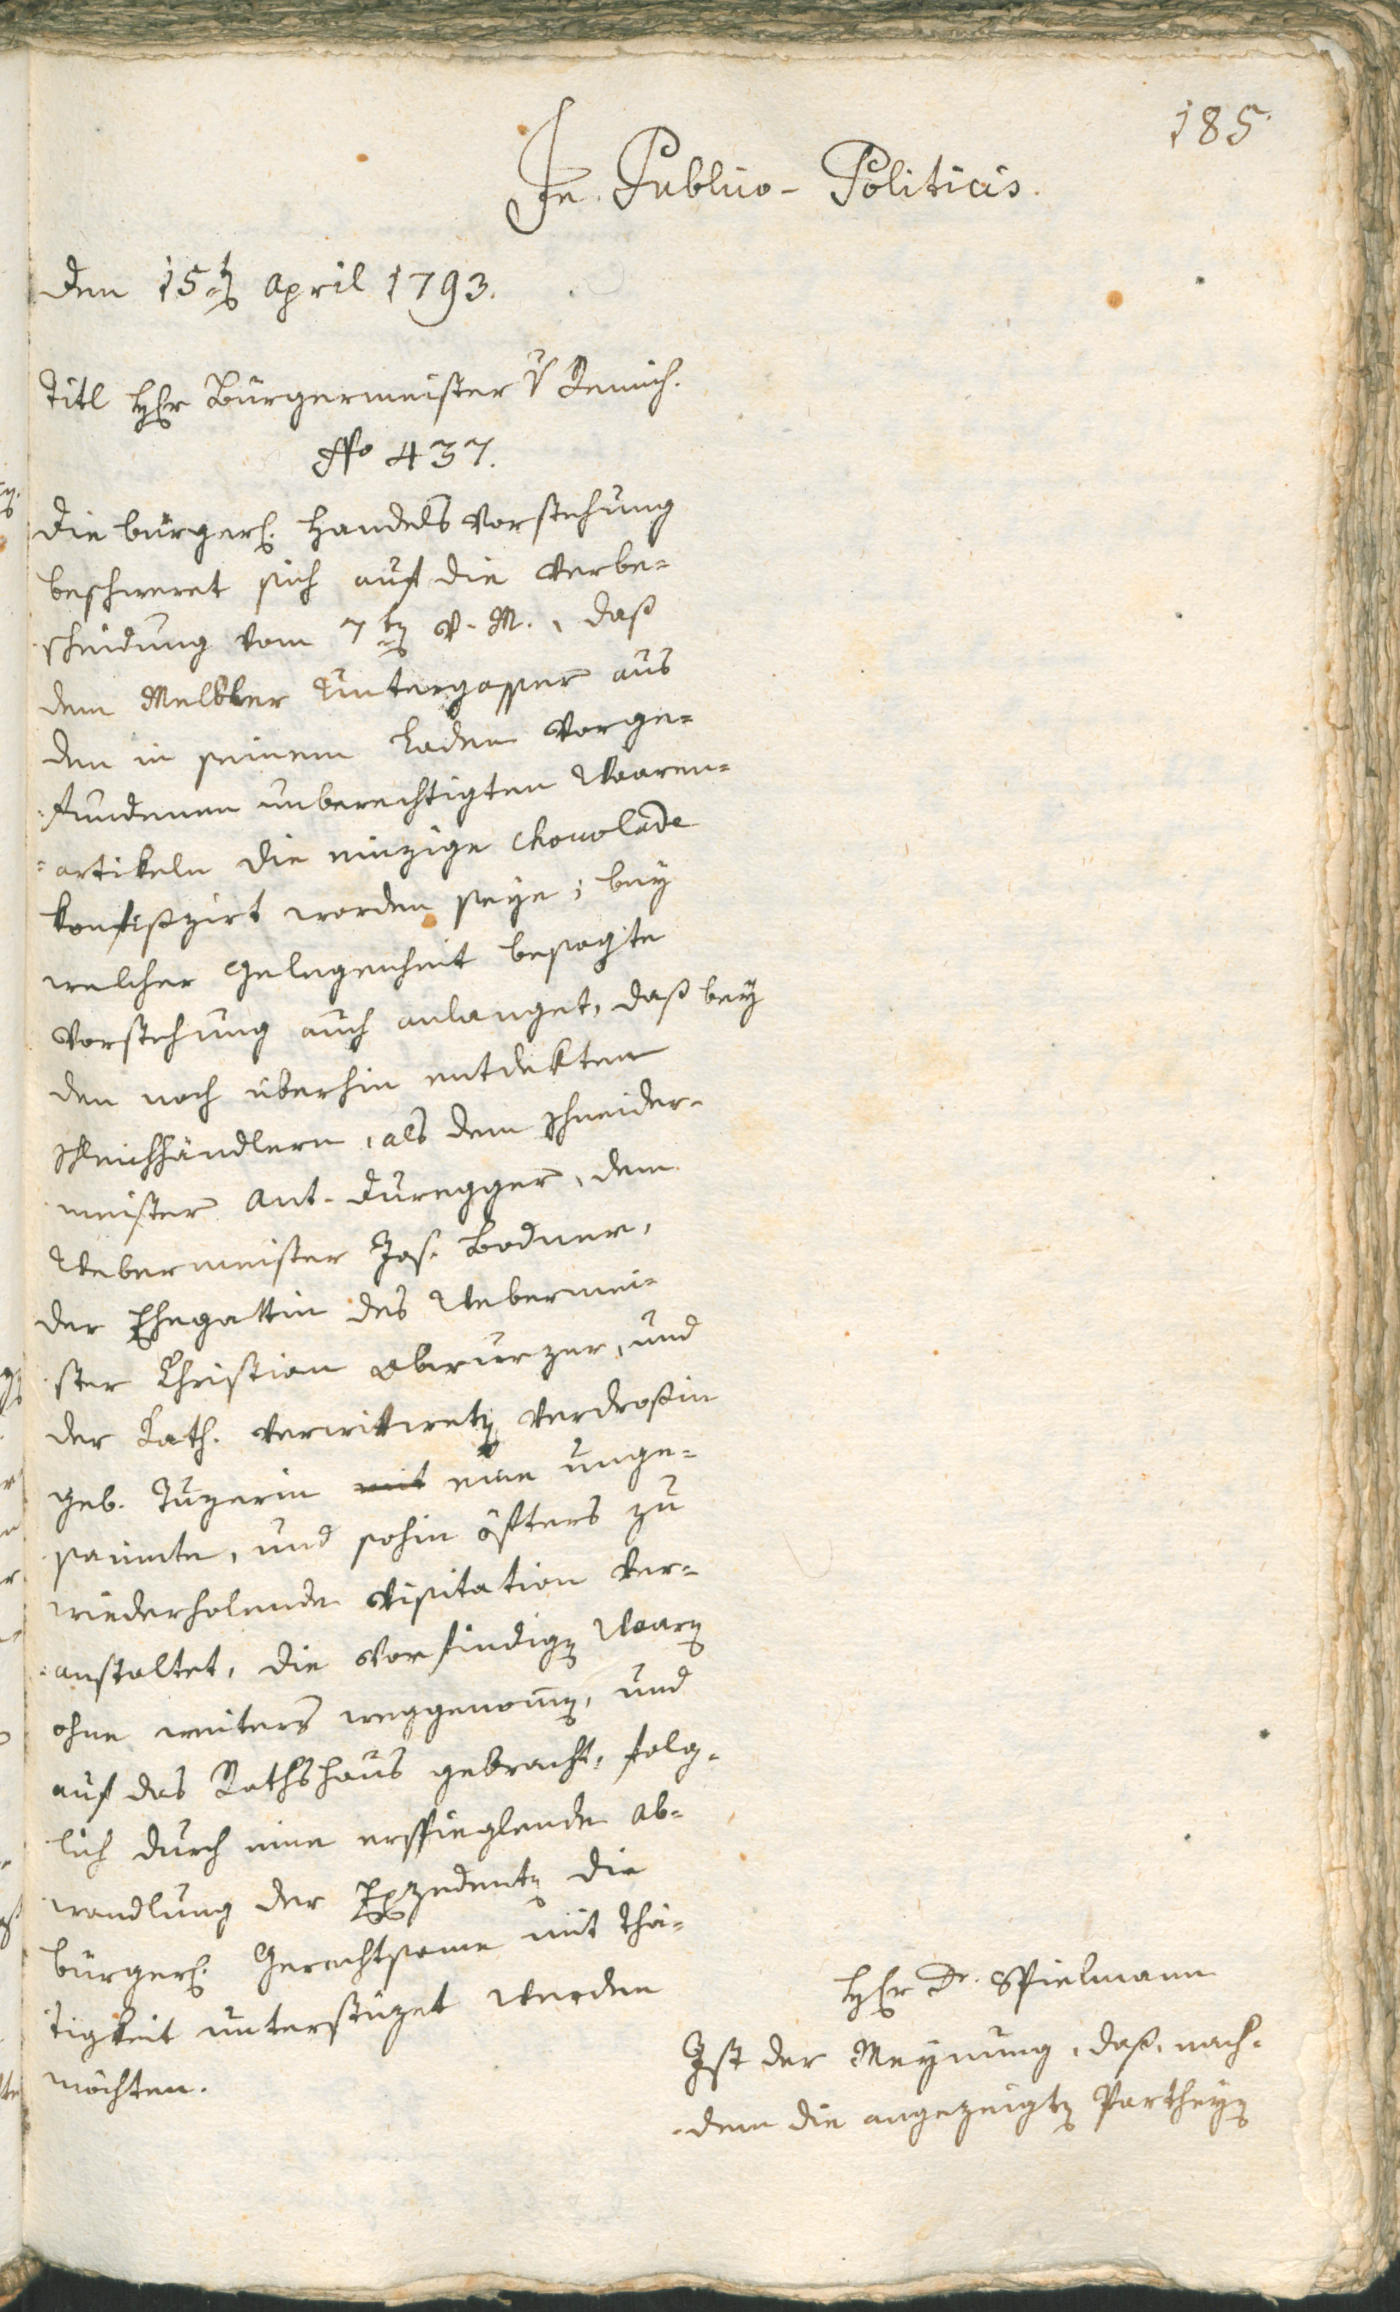 185.
In Publico-Politicis.
den 15ten April 1793.
Titl Herr Bürgermeister v Remich.
No 437.
Die bürgerl. Handels Vorstehung
beschweret sich auf die Verbe-
scheidung vom 7ten v. M., daß
dem Melbler Untergasser aus
den in seinem Laden vorge-
fundenen unberechtigten Waaren-
artikeln die einzige Chocolade
konfisziert worden seye; bey
welcher Gelegenheit besagte
Vorstehung auch anlanget, daß bey
den noch überhin entdekten
Schleichhändlern, als dem Schneider-
meister Ant. Duregger, dem
Webermeister Jos. Bodner,
der Ehegattin des Webermei-
ster Christian Oberurzer, und
der Kath. verwittweten Verdroßin
geb. Tuzerin mit eine unge-
saumte, und sohin öfters zu
wiederholende Visitation ver-
anstaltet, die Vorfindigen Waaren
ohne weiters weggenommen, und
auf das Rathshaus gebracht, folg-
lich durch eine erspieglende Ab-
wandlung der Exzedenten die
bürgerl. Gerechtsame mit Thä-
tigkeit unterstüzet werden
möchten.
Herr Dr. Spielmann
Ist der Meynung, daß, nach-
dem die angezeigten Partheyen